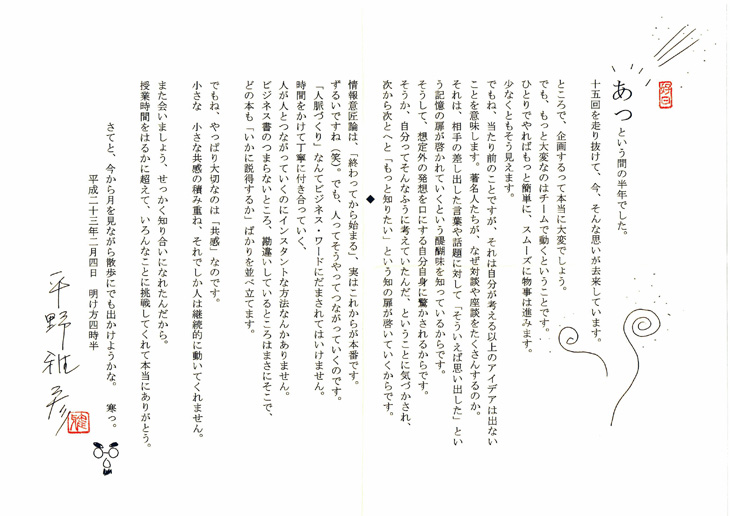 あっ という間の半年でした。
十五回を走り抜けて、今、そんな思いが去来しています。
ところで、企画するって本当に大変でしょう。
でも、もっと大変なのはチームで動くということです。
ひとりでやればもっと簡単に、スムーズに物事は進みます。
少なくともそう見えます。
でもね、当たり前のことですが、それは自分が考える以上のアイデアは出ない
ことを意味します。著名人たちが、なぜ対談や座談をたくさんするのか。
それは、相手の差し出した言葉や話題に対して「そういえば思い出した」とい
う記憶の扉が啓かれていくという醍醐味を知っているからです。
そうして、想定外の発想を口にする自分自身に驚かされるからです。
そうか、自分ってそんなふうに考えていたんだ、ということに気づかされ、
次から次へと「もっと知りたい」という知の扉が啓いていくからです。
◆
情報意匠論は、「終わってから始まる」、実はこれからが本番です。
ずるいですね（笑）。でも、人ってそうやってつながっていくのです。
「人脈づくり」なんてビジネス・ワードにだまされてはいけません。
時間をかけて丁寧に付き合っていく、
人が人とつながっていくのにインスタントな方法なんかありません。
ビジネス書のつまらないところ、勘違いしているところはまさにそこで、
どの本も「いかに説得するか」ばかりを並べ立てます。
でもね、やっぱり大切なのは「共感」なのです。
小さな 小さな共感の積み重ね、それでしか人は継続的に動いてくれません。
また会いましょう、せっかく知り合いになれたんだから。
授業時間をはるかに超えて、いろんなことに挑戦してくれて本当にありがとう。
さてと、今から月を見ながら散歩にでも出かけようかな。 寒っ。
平成二十三年二月四日 明け方四時半
平野雅彦